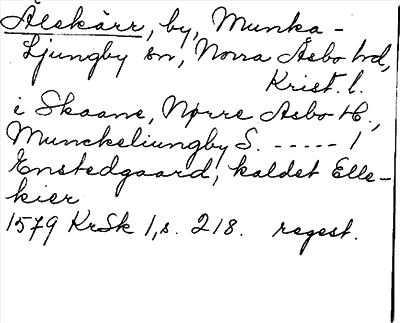 Älskärr, by, Munka-
Ljungby sn, Norra Åsbo hd,
Krist. l.
i Skaane, Nørre Asbo H.,
Munckeliungby S. ----- 1
Enstedgaard, kaldet Elle-
kier
1579 KrSk 1, s. 218. regest.